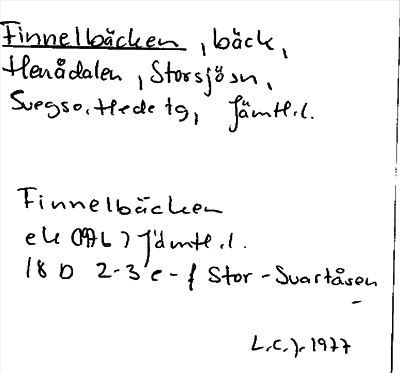 Finnelbäcken, bäck,
Henådalen, Storsjön,
Svegs o. Hede tg, Jämtl.l.
Finnelbäcken
ek (OAL) Jämtl.l.
18 D 2-3 e-f Stor-Svartåsen
L.C.J. 1977